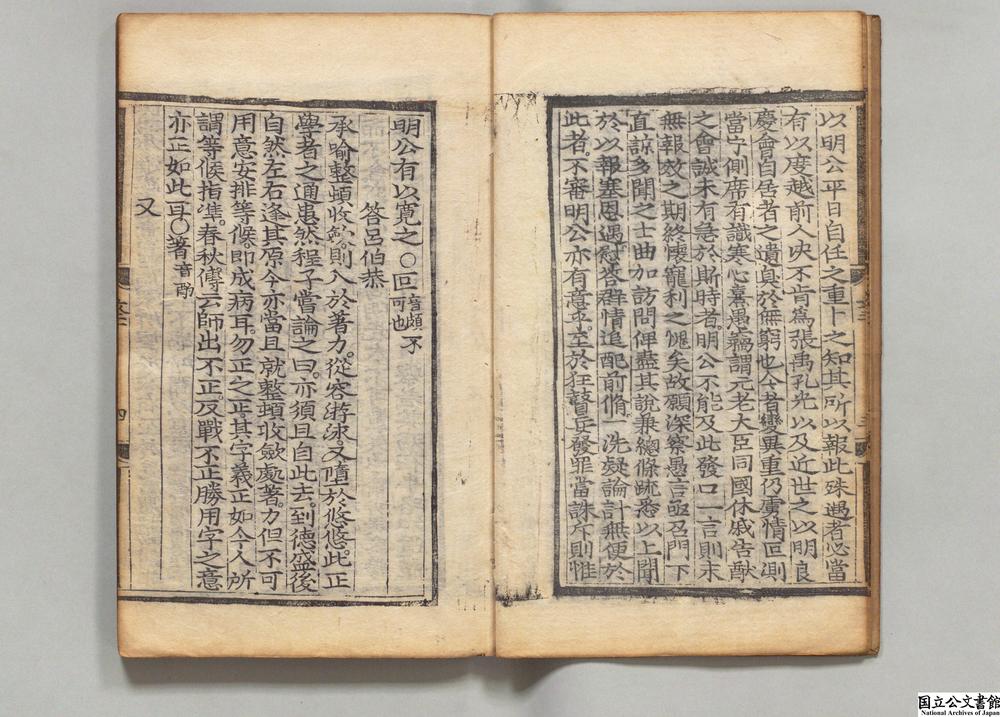 以明公平日自任之重卜之知其所以報此殊遇者必當
有以度越前人決不肯爲張禹孔光以及近世之以明良
慶會自居者之遺臭於無窮也今者變異重仍虜情叵測
當宁側席有識寒心熹愚竊謂元老大臣同國休戚告猷
之會誠未有急於斯時者明公不能及此發口一言則末
無報效之期終懷寵利之愧矣故願深察愚言亟召門下
直諒多聞之士曲加訪問俾盡其說兼總條疏悉以上聞
於以報塞恩遇慰答群情追配前脩一洗疑論計無便於
此者不審明公亦有意乎至於狂瞽妄發罪當誅斥則惟
明公有以寬之〇叵音頗不可也
答呂伯恭
承喻整頓收斂則入於著力從容游泳又墮於悠悠此正
學者之通患然程子嘗論之曰亦須且自此去到德盛後
自然左右逢其原今亦當且就整頓收斂處著力但不可
用意安排等候即成病耳勿正之正其字義正如今人所
謂等候指準春秋傳云師出不正反戰不正勝用字之意
亦正如此耳〇著音酌
又
三
四
国立公文書館
National Archives of Japan